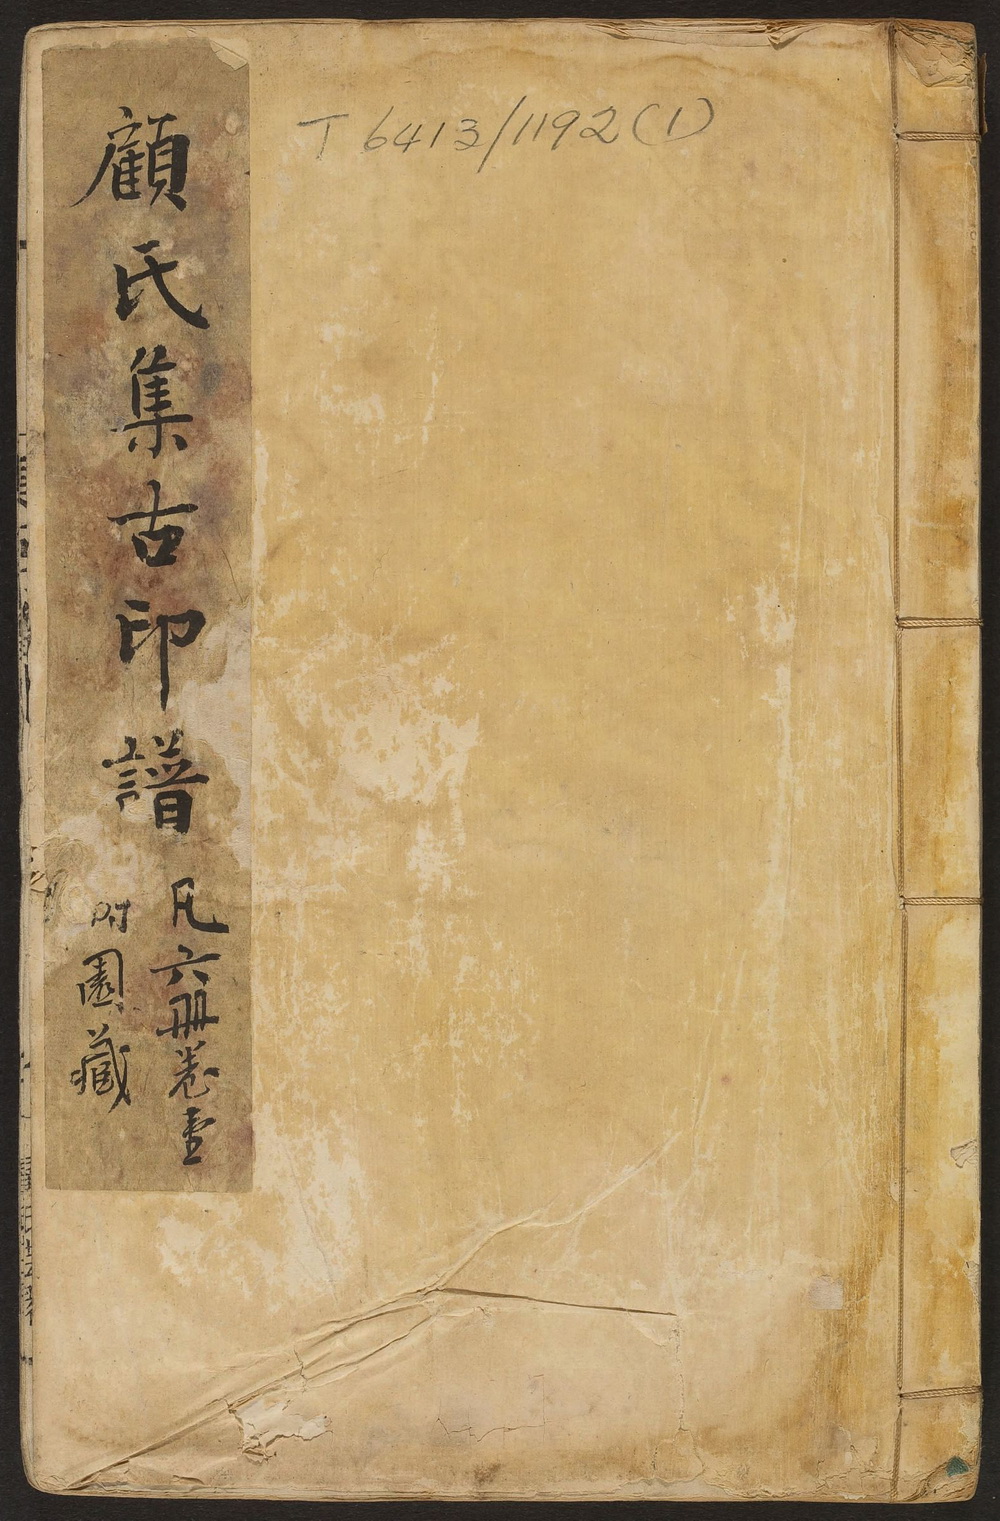 T 6413/1192(1)
顧氏集古印譜
凡六册卷壹
附園藏